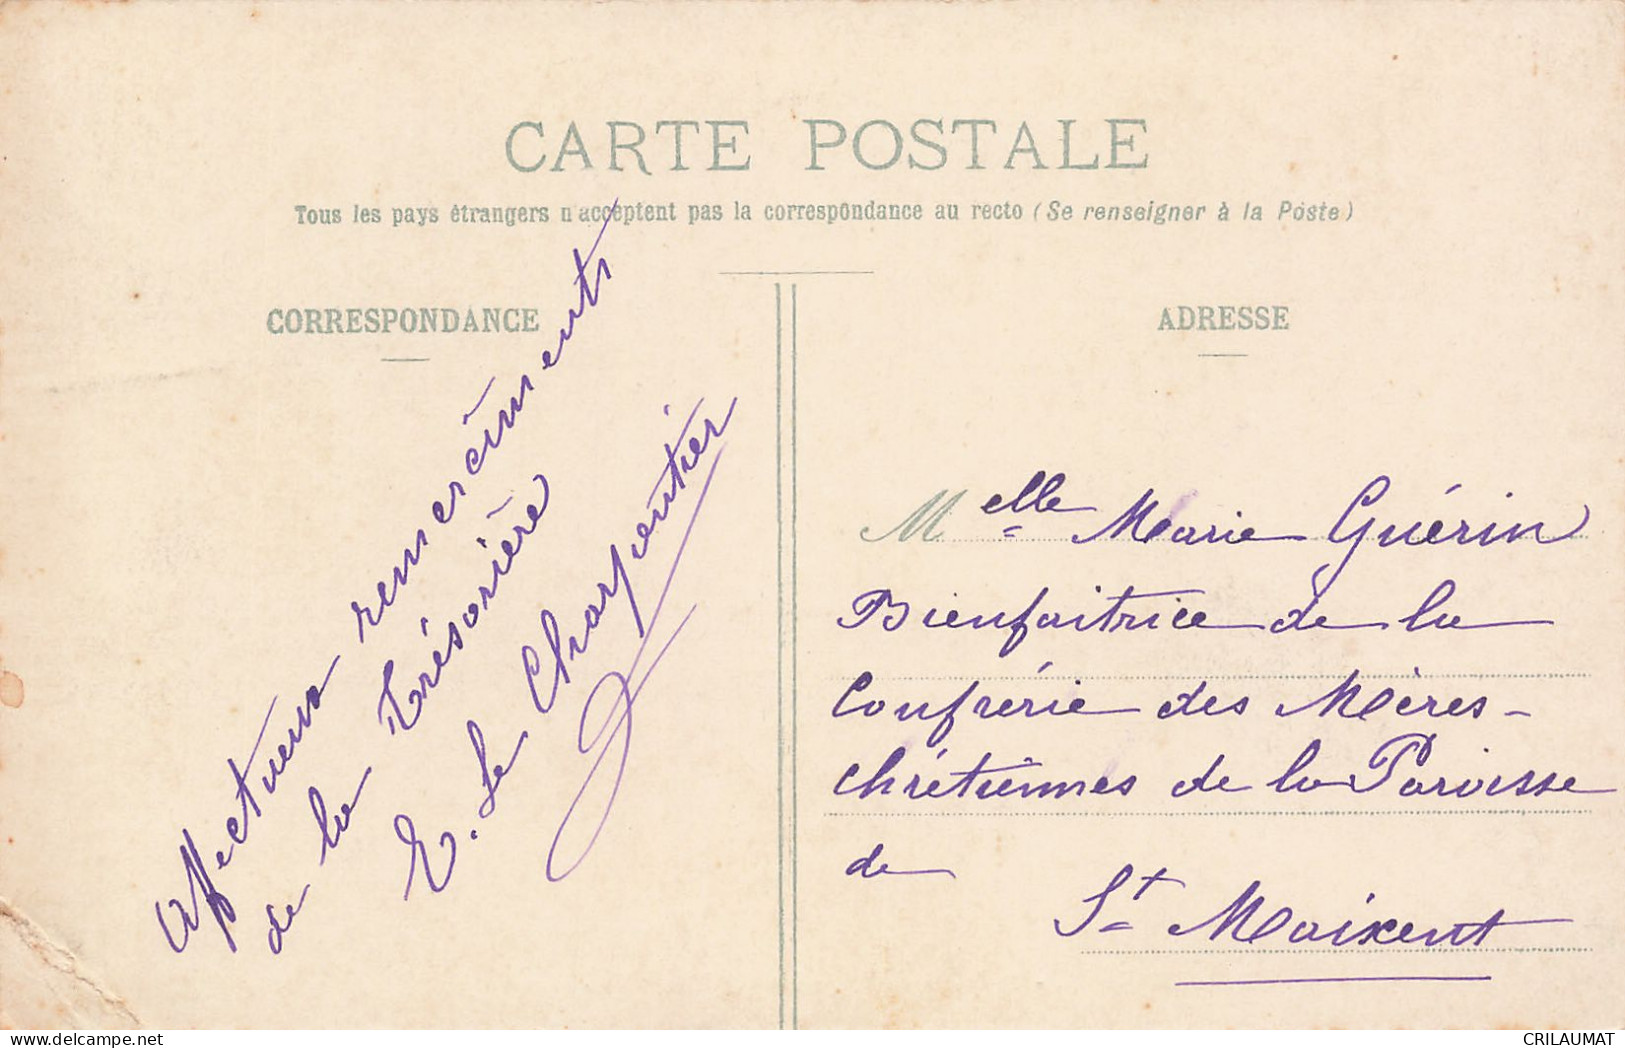 CARTE POSTALE
Tous les pays étrangers n'acceptent pas la correspondance au recto (Se renseigner à la Poste)
CORRESPONDANCE
Affectueux remerciements
de la Trésorière
E. Le Charpentier
ADRESSE
Melle Marie Guérin
Bienfaitrice de la
Confrérie des Mères-
chrétiennes de la Paroisse
de
St Maixent
delcampe.net
CRILAUMAT